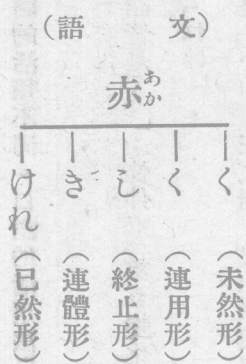 （文語）
赤あか
く（未然形）
く（連用形）
し（終止形）
き（連體形）
けれ（已然形）